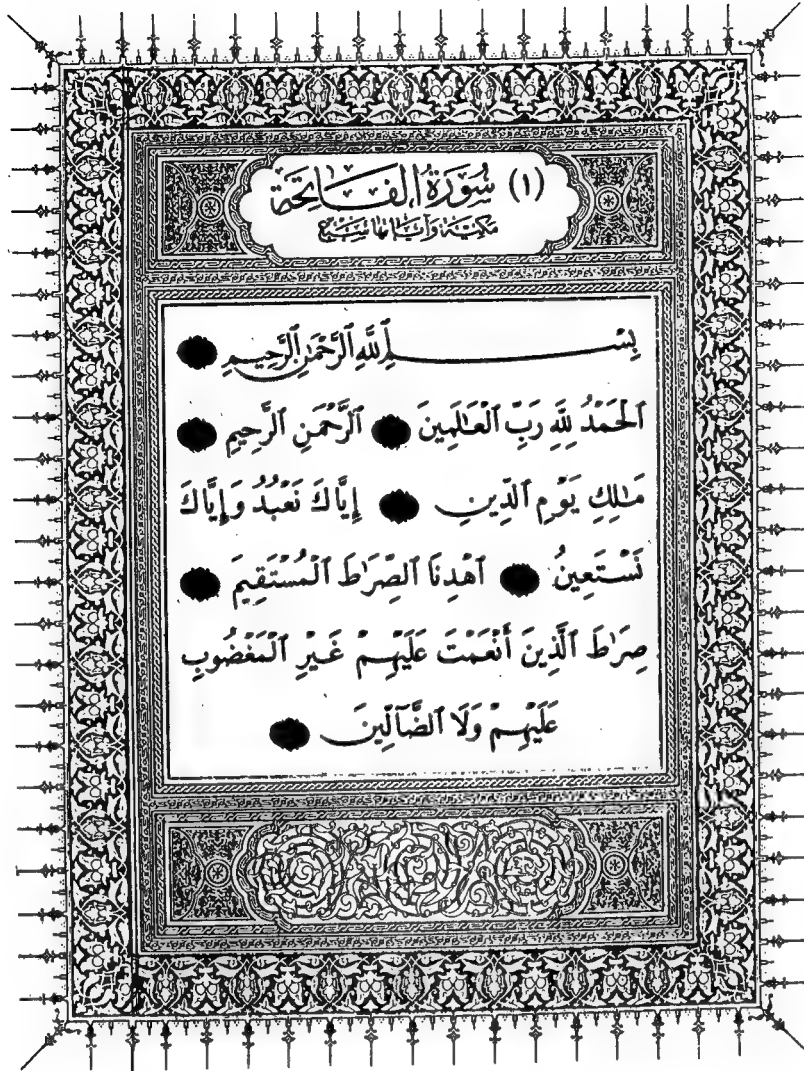 (١) سُورَةُ الْفَاتِحَةِ
مَكِّيَّة وَآيَاتُهَا سَبْع
بِسْــــــمِ ٱللَّهِ ٱلرَّحْمَٰنِ ٱلرَّحِيمِ
ٱلْحَمْدُ لِلَّهِ رَبِّ ٱلْعَٰلَمِينَ ٱلرَّحْمَٰنِ ٱلرَّحِيمِ
مَٰلِكِ يَوْمِ ٱلدِّينِ إِيَّاكَ نَعْبُدُ وَإِيَّاكَ
نَسْتَعِينُ ٱهْدِنَا ٱلصِّرَٰطَ ٱلْمُسْتَقِيمَ
صِرَٰطَ ٱلَّذِينَ أَنْعَمْتَ عَلَيْهِمْ غَيْرِ ٱلْمَغْضُوبِ
عَلَيْهِمْ وَلَا ٱلضَّآلِّينَ